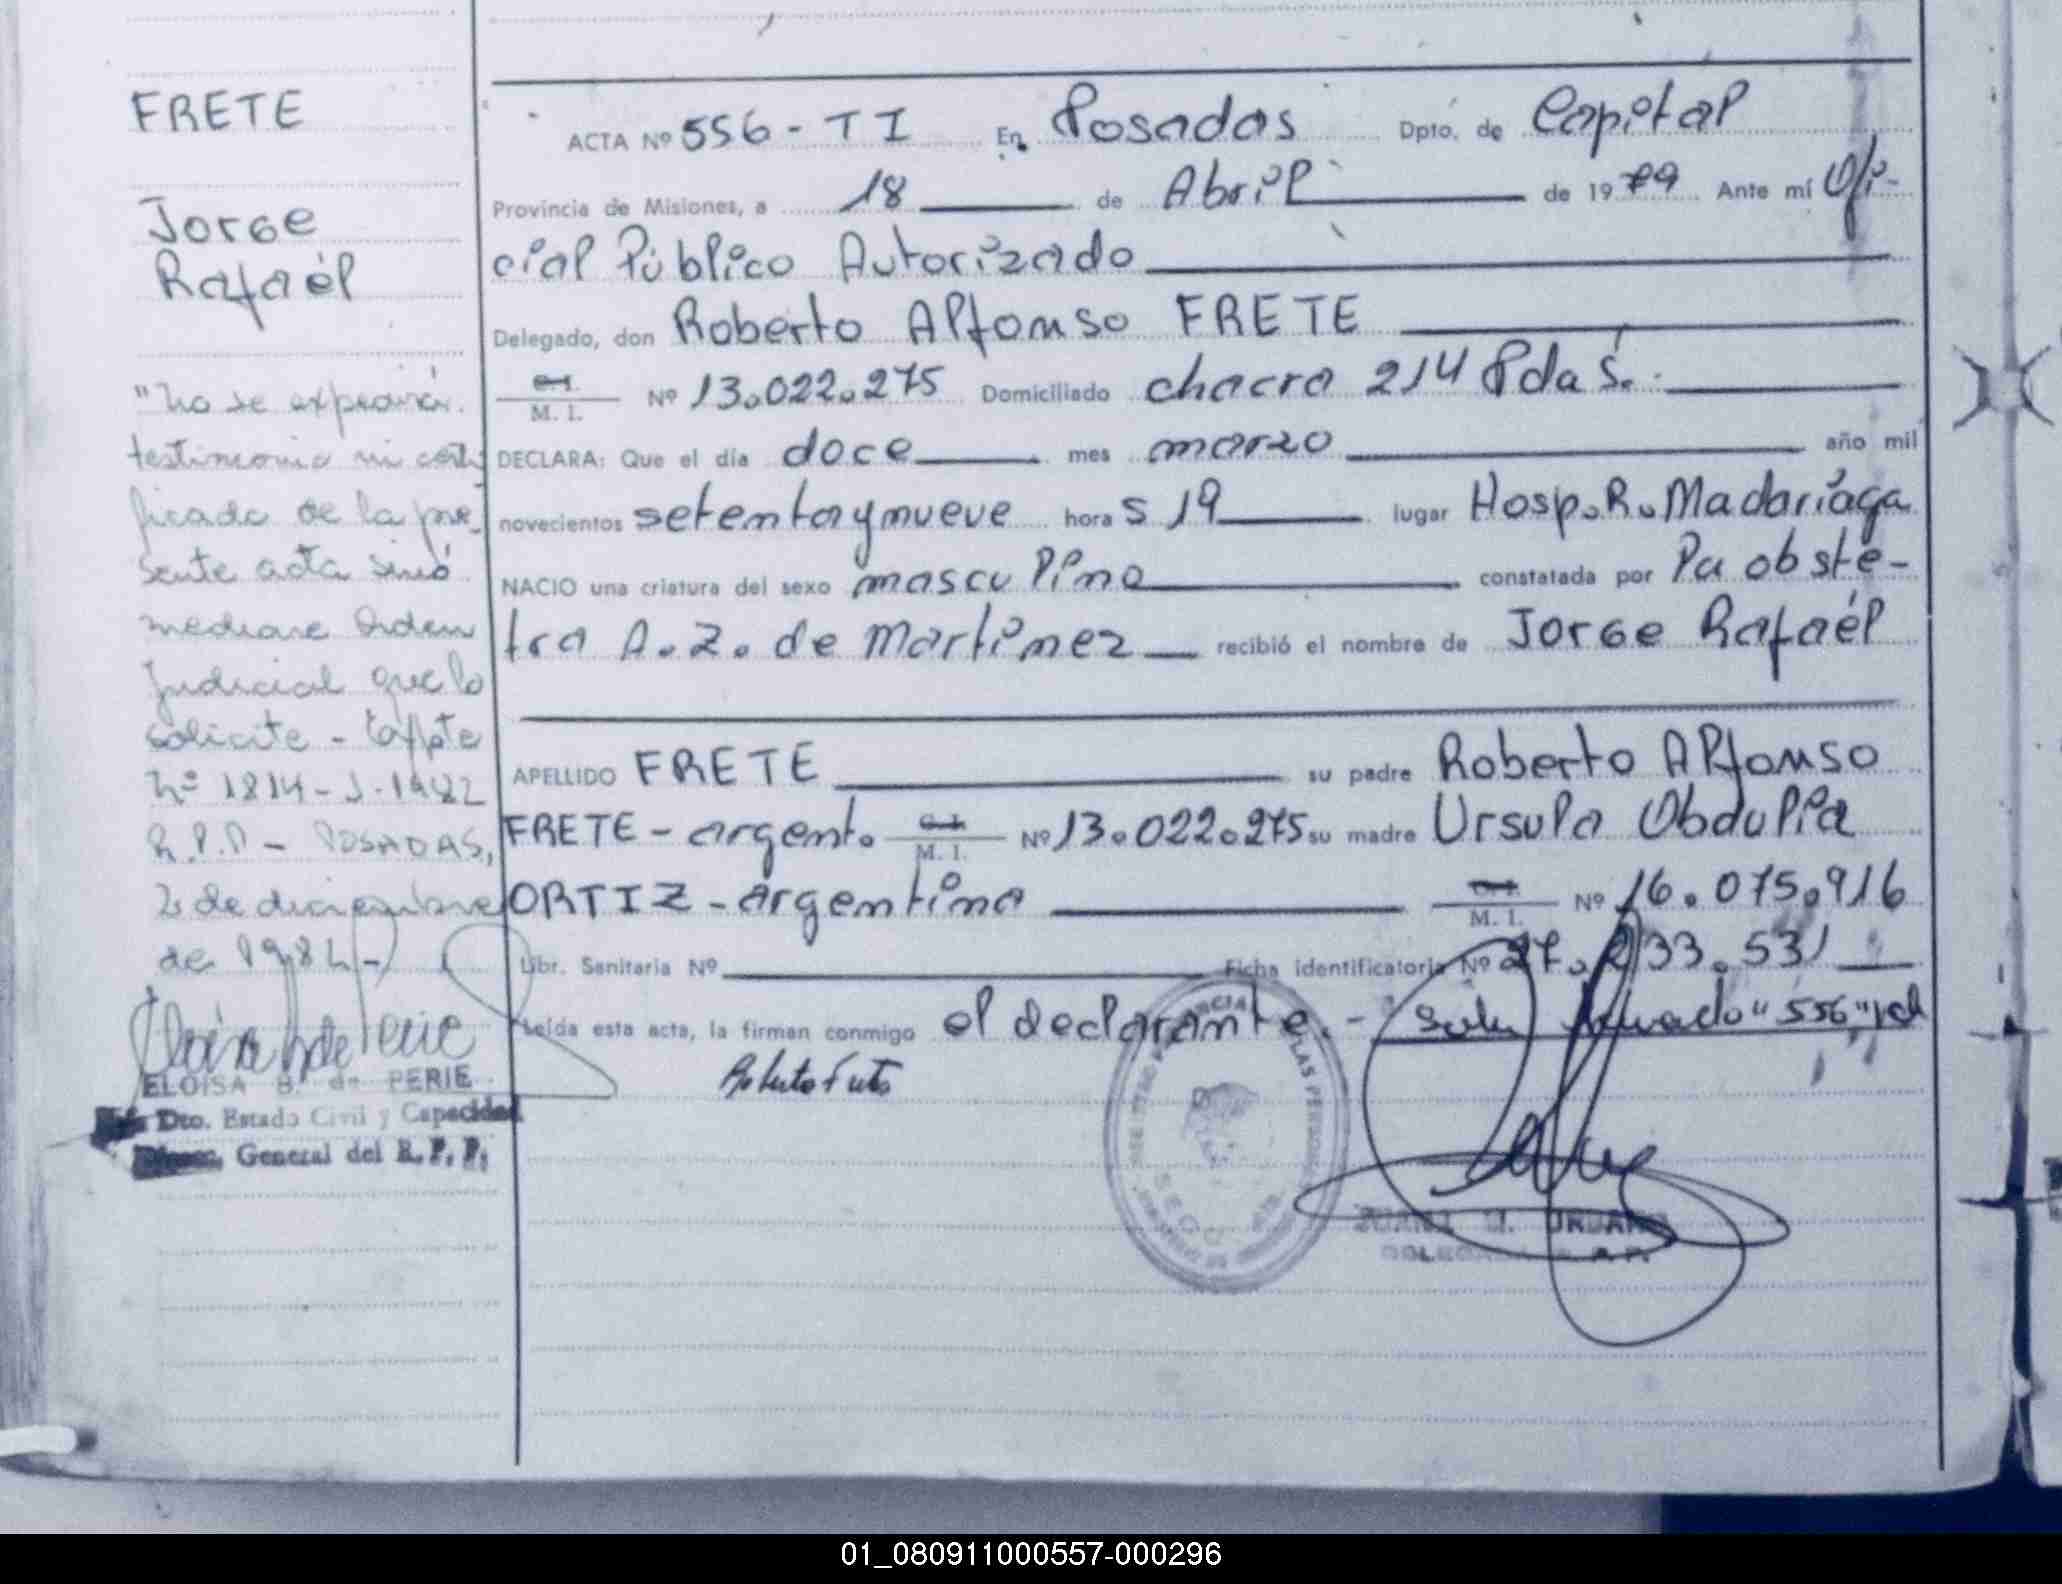 FRETE
Jorge
Rafaél
"no se expedirá
testimonio ni certi
ficado de la pre-
sente acta sinó
mediare orden
judicial que lo
solicite - Expte
Nº 1814-J-1982
R.P.P - POSADAS,
2 de diciembre
de 1982-
ELOISA B. de PERIE
Dto. Estado Civil y Capacidad
General del R. P. P.
ACTA Nº 556-TI En Posadas Dpto. de Capital
Provincia de Misiones, a 18 de Abril de 1979 Ante mí Ofi-
cial Público Autorizado
Delegado, don Roberto Alfonso FRETE
M. I. Nº 13.022.275 Domiciliado chacra 214 Pdas.
DECLARA: Que el día doce mes marzo año mil
novecientos setenta y nueve hora s 19 lugar Hosp. R. Madariaga
NACIO una criatura del sexo masculino constatada por la obste-
tra A. Z. de Martinez recibió el nombre de Jorge Rafaél
APELLIDO FRETE su padre Roberto Alfonso
FRETE - argent. M. I. Nº 13.022.275 su madre Ursula Obdulia
ORTIZ - argentina M. I. Nº 16.075.916
Libr. Sanitaria Nº Ficha identificatoria Nº 27.233.531
Leída esta acta, la firman conmigo el declarante.- "556"
Roberto Frete
URBANO
01_080911000557-000296